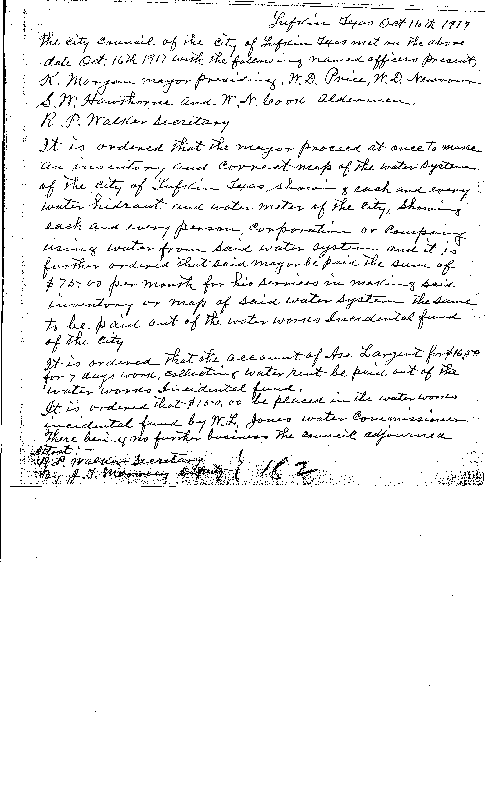 Lufkin Texas Oct 16th 1917
The City Council of the City of Lufkin Texas met on the above
date Oct. 16th 1917 with the following named officers present,
K. Morgan mayor presiding, W.D. Price, W.D. Newsom
S.W. Hawthorne and W.N. Cook Aldermen.
R.P. Walker Secretary
It is ordered that the mayor proceed at once to make
an inventory and correct map of the water system
of the City of Lufkin Texas, showing each and every
water hidrant and water meter of the City, showing
each and every person, corporation or company
using water from said water system and it is
further ordered that said mayor be paid the sum of
$75.00 per month for his services in making said
inventory or map of said water system the same
to be paid out of the water works Incidental fund
of the City
It is ordered that the account of Largent for $16.50
for 7 days work, collecting water rent be paid out of the
water works Incidental fund.
It is ordered that $150.00 be placed in the water works
incidental fund by W.L. Jones water Commissioner
There being no further business the council adjourned
Attest:-
R.P. Walker Secretary
By J.T.
162